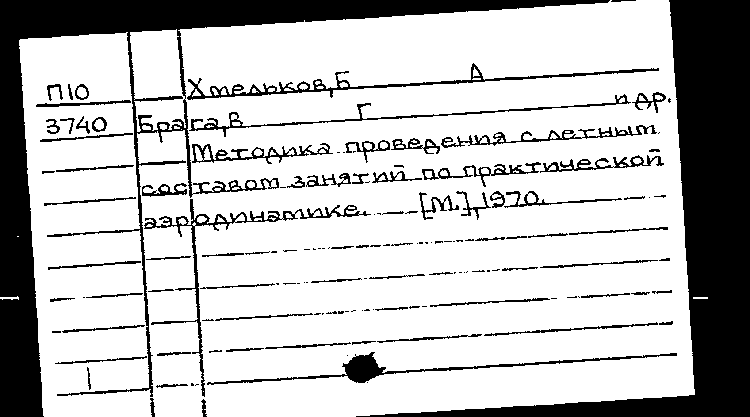 П10 Хмельков, Б А
3740 Брага, В Г и др.
Методика проведения с летным
составом занятий по практической
аэродинамике. [М.], 1970.